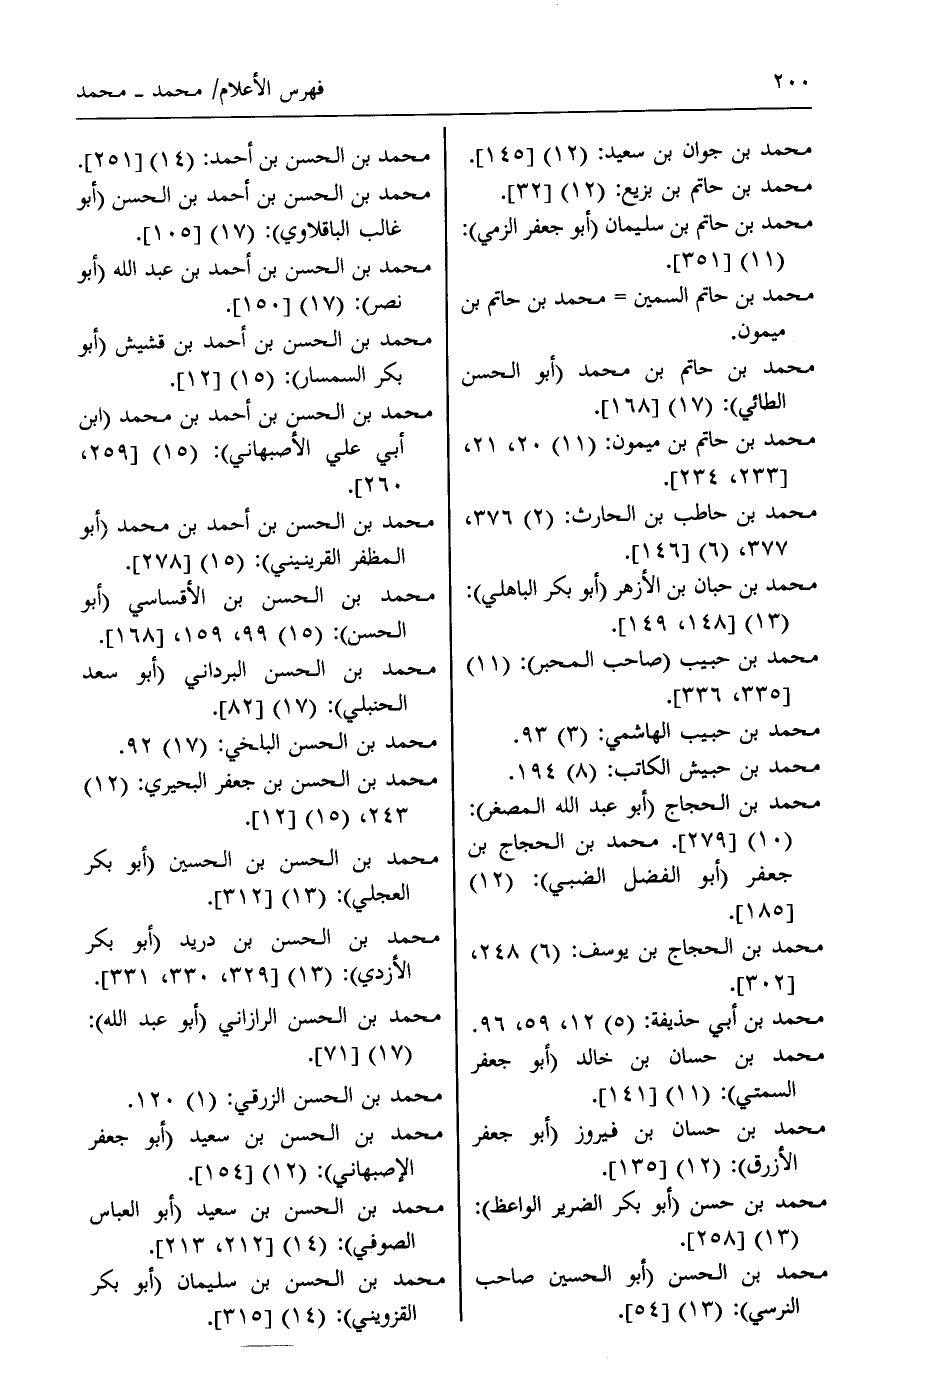 ٢٠٠
فهرس الأعلام/ محمد ـ محمد
محمد بن جوان بن سعيد: (١٢) [١٤٥].
محمد بن حاتم بن بزيع: (١٢) [٣٢].
محمد بن حاتم بن سليمان (أبو جعفر الزمي):
(١١) [٣٥١].
محمد بن حاتم السمين = محمد بن حاتم بن
ميمون.
محمد بن حاتم بن محمد (أبو الحسن
الطائي): (١٧) [١٦٨].
محمد بن حاتم بن ميمون: (١١) ٢٠، ٢١،
[٢٣٣، ٢٣٤].
محمد بن حاطب بن الحارث: (٢) ٣٧٦،
٣٧٧، (٦) [١٤٦].
محمد بن حبان بن الأزهر (أبو بكر الباهلي):
(١٣) [١٤٨، ١٤٩].
محمد بن حبيب (صاحب المحبر): (١١)
[٣٣٥، ٣٣٦].
محمد بن حبيب الهاشمي: (٣) ٩٣.
محمد بن حبيش الكاتب: (٨) ١٩٤.
محمد بن الحجاج (أبو عبد الله المصغر):
(١٠) [٢٧٩]. محمد بن الحجاج بن
جعفر (أبو الفضل الضبي): (١٢)
[١٨٥].
محمد بن الحجاج بن يوسف: (٦) ٢٤٨،
[٣٠٢].
محمد بن أبي حذيفة: (٥) ١٢، ٥٩، ٩٦.
محمد بن حسان بن خالد (أبو جعفر
السمتي): (١١) [١٤١].
محمد بن حسان بن فيروز (أبو جعفر
الأزرق): (١٢) [١٣٥].
محمد بن حسن (أبو بكر الضرير الواعظ):
(١٣) [٢٥٨].
محمد بن الحسن (أبو الحسين صاحب
النرسي): (١٣) [٥٤].
محمد بن الحسن بن أحمد: (١٤) [٢٥١].
محمد بن الحسن بن أحمد بن الحسن (أبو
غالب الباقلاوي): (١٧) [١٠٥].
محمد بن الحسن بن أحمد بن عبد الله (أبو
نصر): (١٧) [١٥٠].
محمد بن الحسن بن أحمد بن قشيش (أبو
بكر السمسار): (١٥) [١٢].
محمد بن الحسن بن أحمد بن محمد (ابن
أبي علي الأصبهاني): (١٥) [٢٥٩،
٢٦٠].
محمد بن الحسن بن أحمد بن محمد (أبو
المظفر القرينيني): (١٥) [٢٧٨].
محمد بن الحسن بن الأقساسي (أبو
الحسن): (١٥) ٩٩، ١٥٩، [١٦٨].
محمد بن الحسن البرداني (أبو سعد
الحنبلي): (١٧) [٨٢].
محمد بن الحسن البلخي: (١٧) ٩٢.
محمد بن الحسن بن جعفر البحيري: (١٢)
٢٤٣، (١٥) [١٢].
محمد بن الحسن بن الحسين (أبو بكر
العجلي): (١٣) [٣١٢].
محمد بن الحسن بن دريد (أبو بكر
الأزدي): (١٣) [٣٢٩، ٣٣٠، ٣٣١].
محمد بن الحسن الرازاني (أبو عبد الله):
(١٧) [٧١].
محمد بن الحسن الزرقي: (١) ١٢٠.
محمد بن الحسن بن سعيد (أبو جعفر
الإصبهاني): (١٢) [١٥٤].
محمد بن الحسن بن سعيد (أبو العباس
الصوفي): (١٤) [٢١٢، ٢١٣].
محمد بن الحسن بن سليمان (أبو بكر
القزويني): (١٤) [٣١٥].